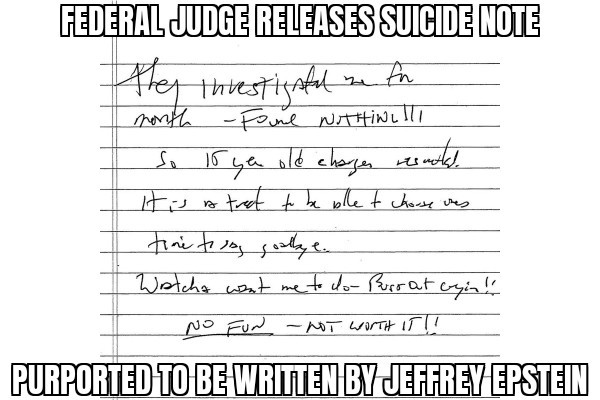 FEDERAL JUDGE RELEASES SUICIDE NOTE
They investigated me for
month - Found NOTHING!!!
So 15 year old charges resulted.
It is a treat to be able to choose ones
time to say goodbye.
Watcha want me to do - Burst out cryin!!
NO FUN - NOT WORTH IT!!
PURPORTED TO BE WRITTEN BY JEFFREY EPSTEIN